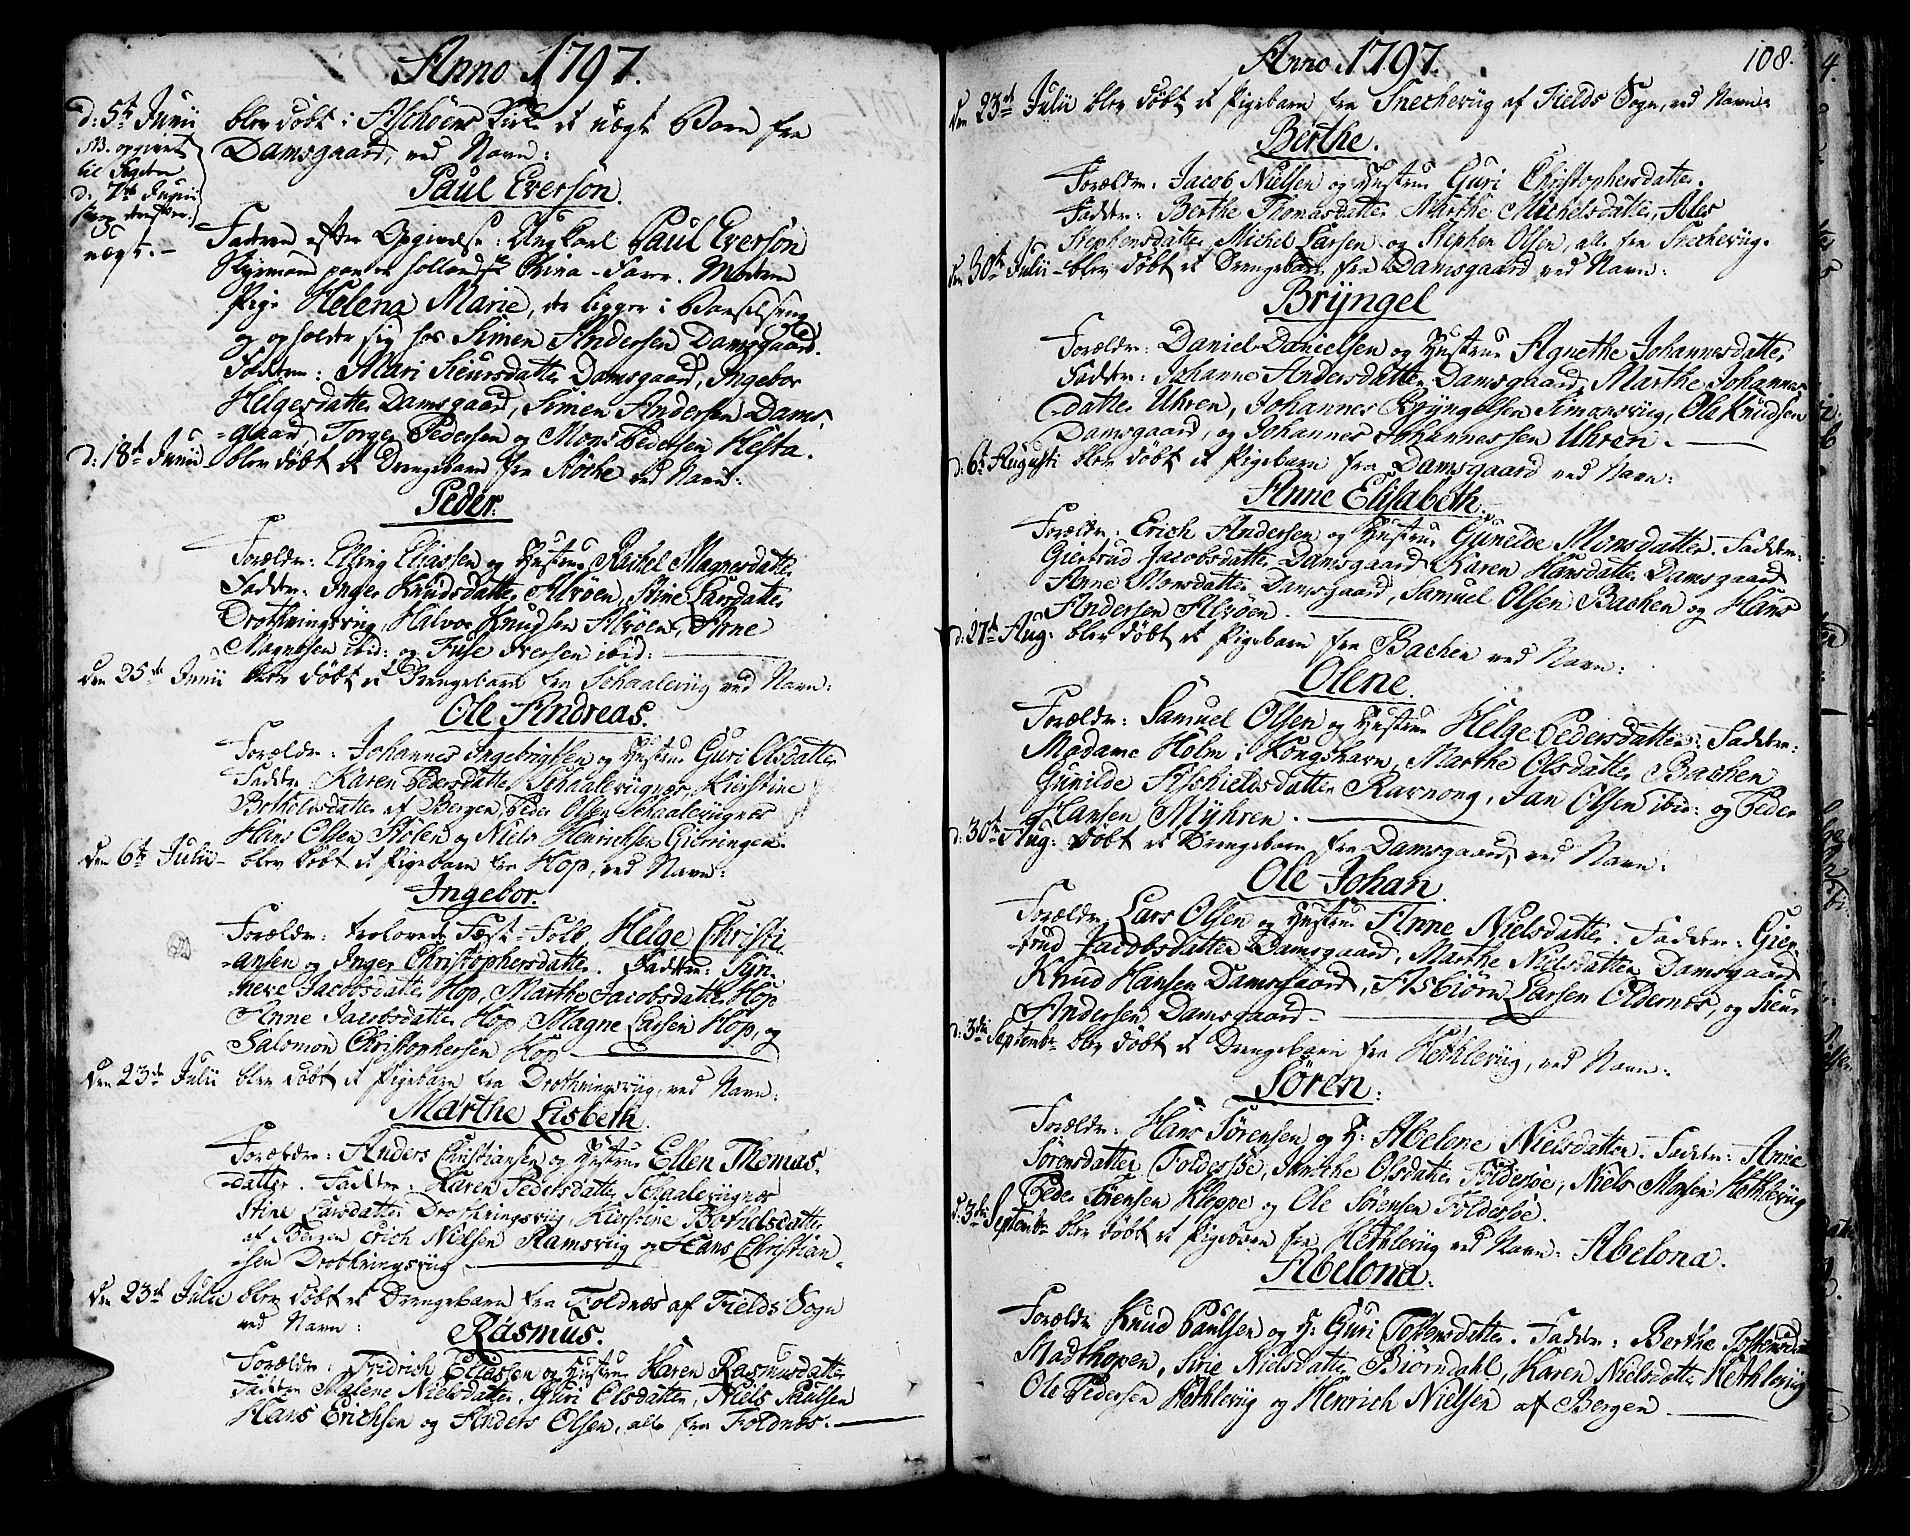 Anno 1797.
d: 5te Junii blev døbt i Aschøens Kirke et uægte Barn fra
NB. opgivet
Damsgaard, ved Navn:
til Fogden
d: 7de Junii
Paul Everson.
uægt. -
Faderen efter Opgivelse: Ungkarl Paul Everson
Styrmand paa et hollandsk China-Farer. Moderen
Pige Helena Marie, der ligger i Barselseng
og opholder sig hos Simen Andersen Damsgaard.
Faddere: Mari Siursdatter Damsgaard, Ingebor
Helgesdatter Damsgaard, Simen Andersen Dams-
-gaard, Torger Pedersen og Mons Pedersen Hesta.
d: 18de Junii blev døbt et Drengebarn fra Røche ved Navn:
Peder.
Forældre: Elling Eliassen og Hustrue Rachel Magnesdatter
Faddere: Inger Knudsdatter Alvøen, Stine Larsdatter
Drothningsviig, Halvor Knudsen Alvøen, Arne
Magnesen ibid: og Fuse Iversen ibid:
den 25de Junii blev døbt et Drengebarn fra Schaaleviig ved Navn:
Ole Andreas.
Forældre: Johannes Ingebrigtsen og Hustrue Guri Olsdatter
Faddere: Karen Pedersdatter Schaaleviignæs, Kierstine
Bothelsdatter af Bergen, Peder Olsen Schaaleviignæs
Hans Olsen Stølen og Niels Henrichsen Gierringen.
den 6te Julii - blev døbt et Pigebarn fra Hop, ved Navn:
Ingebor.
Forældre: trolovede Fæste-Folk Helge Christi-
-ansen og Inger Christophersdatter. Faddere: Syn-
neve Jacobsdatter Hop, Marthe Jacobsdatter Hop
Anne Jacobsdatter Hop, Magne Larsen Hop, og
Salomon Christophersen Hop
den 23de Julii blev døbt et Pigebarn fra Drothningsviig, ved Navn:
Marthe Lisbeth.
Forældre: Anders Christiansen og Hustrue Ellen Thomas-
-datter. Faddere: Karen Pedersdatter Schaaleviignæs
Stine Larsdatter Drothningsviig, Kierstine Bothelsdatter
af Bergen Erich Nielsen Ramsviig og Hans Christian-
-sen Drothningsviig
den 23de Julii blev døbt et Drengebarn fra Foldnæs af Fields Sogn
ved Navn:
Rasmus.
Forældre: Fredrich Eliassen og Hustrue Karen Rasmusdatter
Faddere Malene Nielsdatter, Guri Olsdatter, Niels Paulsen
Hans Erichsen og Anders Olsen, alle fra Foldnæs.
Anno 1797. 108.
den 23de Julii blev døbt et Pigebarn fra Snecheviig af Fields Sogn, ved Navn:
Berthe.
Forældre: Jacob Nielsen og Hustrue Guri Christophersdatter.
Faddere: Berthe Thomasdatter Marthe Michelsdatter, Ales
Stephensdatter, Michel Larsen og Stephen Olsen, alle fra Snecheviig.
den 30te Julii - blev døbt et Drengebarn fra Damsgaard ved Navn:
Brÿngel
Forældre: Daniel Danielsen og Hustrue Agnethe Johannesdatter
Faddere: Johanne Andersdatter Damsgaard, Marthe Johannes-
-datter Uhren, Johannes Brÿngelsen Simonsviig, Ole Knudsen
Damsgaard, og Johannes Johannessen Uhren.
d: 6te Augusti blev døbt et Pigebarn fra Damsgaard ved Navn:
Anne Elisabeth.
Forældre: Erich Andersen og Hustrue Gunilde Monsdatter. Faddere:
Giertrud Jacobsdatter Damsgaard Karen Hansdatter Damsgaard
Anne Monsdatter Damsgaard, Samuel Olsen Bachen og Hans
Andersen Alvøen.
d: 27de Aug: blev døbt et Pigebarn fra Bachen ved Navn:
Olene.
Forældre: Samuel Olsen og Hustrue Helge Pedersdatter: Faddere:
Madame Holm i Kongshavn, Marthe Olsdatter Bachen
Gunilde Aschieldsdatter Ravnong, Jan Olsen ibid: og Peder
Hansen Myhren.
d: 30te Aug: døbt et Drengebarn fra Damsgaard, ved Navn:
Ole Johan.
Forældre Lars Olsen og Hustrue Anne Nielsdatter. Faddere: Gier-
-trud Jacobsdatter Damsgaard, Marthe Nielsdatter Damsgaard
Knud Hansen Damsgaard, Asbiørn Larsen Oldernæs, og Siur
Andersen Damsgaard
d: 3die Septembr blev døbt et Drengebarn fra Hethleviig, ved Navn:
Søren.
Forældre: Hans Sørensen og H: Abelone Nielsdatter. Faddere: Anne
Sørensdatter Foldersøe, Olsdatter Foldersøe, Niels Monsen Hethleviig
Peder Sørensen Kleppe og Ole Sørensen Foldersøe.
d: 3die Septembr blev døbt et Pigebarn fra Hethleviig ved Navn: Abelona.
Abelona.
Forældre Knud Paulsen og H: Guri Tostensdatter. Faddere: Berthe
Stadthopen, Sirie Nielsdatter Biørndahl, Karen Nielsdatter Hethleviig
Ole Pedersen Hethleviig og Henrich Nielsen af Bergen